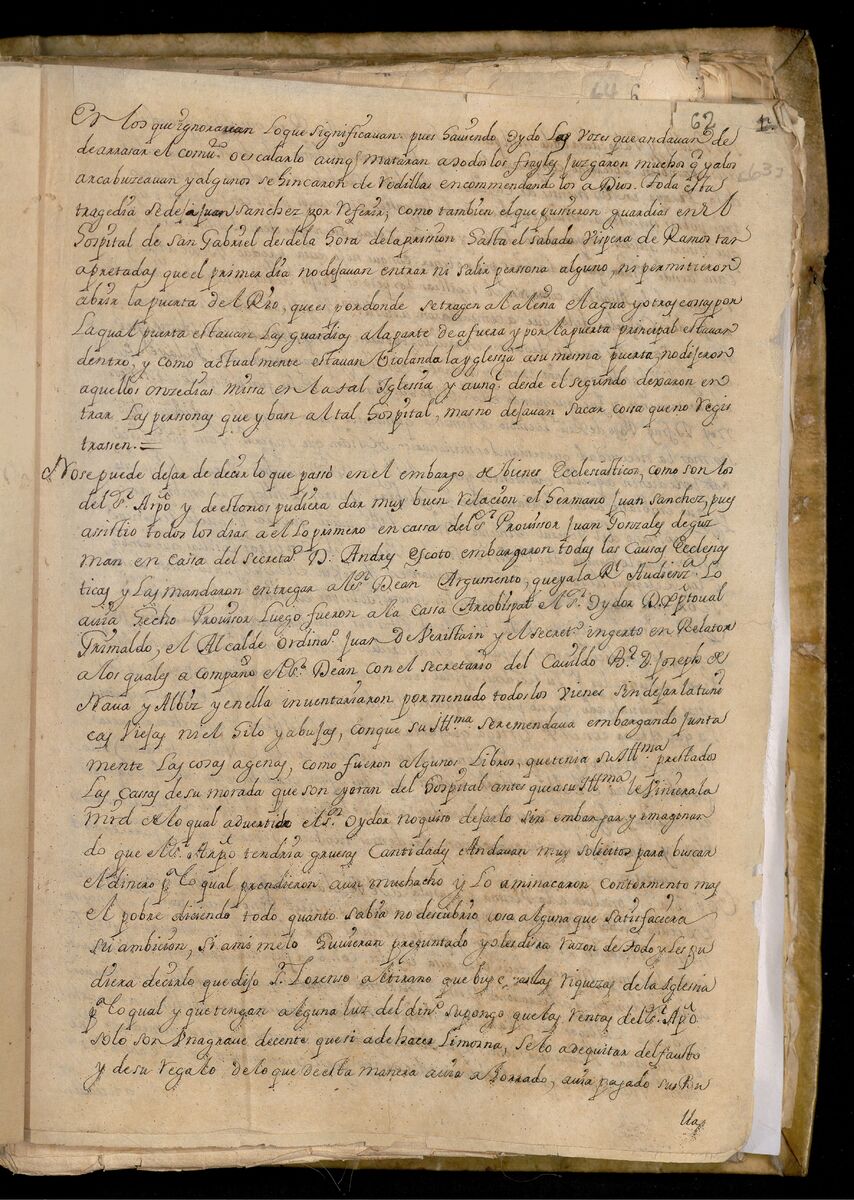 62
en los que ignoravan loque significavan, pues haviendo oydo las vozes que andavan de
de arrasar el comu.º o escalarlo aunq̃ mataran a todos los frayles juzgaron muchos q̃ ya los
arcabuzeavan y algunos se hincaron de Rodillas encommendando los a Dios. toda esta
tragedia se deja a Juan sanchez por Referir, como tambien el que pussieron guardias en el
hospital de san Gabriel desde la hora dela prission hasta el sabado vispera de Ramos tan
apretadas que el primer dia no dejavan entrar ni salir perssona alguno, ni permitieron
abrir la puerta del Rio, que es por donde se tragen al a leña el agua y otras cossas por
la qual puerta estavan las guardias a la parte de afuera y por la puerta principal estavan
dentro, y como actualmente estavan violando la yglesia a su mesma puerta, no dijeron
aquellos onze dias missa en la tal Iglesia y aunq̃ desde el segundo dexaron en
trar las perssonas que yban al tal hospital, mas no dejavan sacar cossa que no Regis
trassen. =
No se puede dejar de decir lo que passò en el embargo de bienes Ecclesiasticos, como son los
del S.r Arpõ y de estonos pudiera dar muy buen Relacion el Hermano Juan sanchez, pues
assistio todos los dias a el lo primero en cassa del S.r Provissor Juan Gonzales de guz
man en cassa del secreta.º D. Andres Escoto embargaron todas las Causas Ecclesias
ticas y las mandaron entregar al S.r Dean Argumento, que ya la R.l Audienz.a lo
avia hecho Provissor Luego fueron a la cassa Arcobispal el S.r Oydor D. Xptoval
Grimaldo, el Alcalde Ordina.º Juan de Veristain y el secret.º ingerto en Relator
a los quales a compaño el S.r Dean con el secretario del Cavildo B.r D. Joseph de
Nava y Albiz y en ella inventariaron por menudo todos los vienes sin dejar las tuni
cas viejas ni el hilo y abujas, conque su Ill.ma se remendava embargando junta
mente las cosas agenas, como fueron algunos libros, que tenia su Ill.ma prestados
las cassas de su morada que son y eran del hospital antes que a su Ill.ma le viniera la
mrd de lo qual advertido el S.r Oydor no quiso dejarlo sin embargar y imaginan
do que el S.r Arpõ tendria gruesas cantidades Andavan muy solicitos para buscar
el dinero p.a lo qual prendieron a un muchacho y lo aminacaron con tormento mas
el pobre diciendo todo quanto sabia no descubrio cosa alguna que satisfaciera
su ambicion, si a mi me lo huvieran preguntado yo les diera razon de todo y les pu
diera decir lo que dijo S. Lorenso al tirano que las riquezas de la Iglesia
p.a lo qual y que tengan alguna luz del din.º supongo que las Rentas del S.r Arpõ
solo son decente que si a de hacer limosna, se lo a de quitar del fausto
y de su regalo de lo que de esta manera avia ahorrado, avia pagado sus Bu
llas